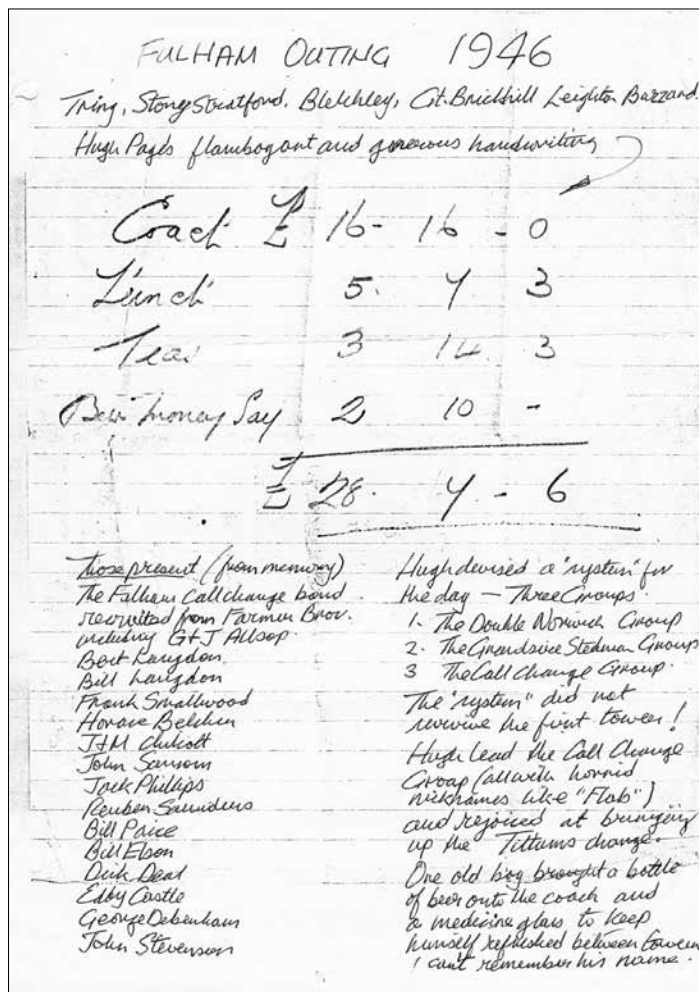 FULHAM OUTING 1946
Tring, Stony Stratford, Bletchley, Gt. Brickhill Leighton Buzzard.
Hugh Page's flamboyant and generous handwriting
Coach £ 16 - 16 - 0
Lunch 5. 4 3
Teas 3 14 3
Beer money Say 2 10 -
£ 28. 4 - 6
Those present (from memory)
The Fulham Callchange band
recruited from Farmer Bros.
including G+J Allsop.
Bert Langdon
Bill Langdon
Frank Smallwood
Horace Belcher
J+M Chilcott
John Sansom
Jack Phillips
Reuben Saunders
Bill Paice
Bill Elson
Dick Deal
Eddy Castle
George Debenham
John Stevenson
Hugh devised a "system" for
the day — Three Groups.
1. The Double Norwich Group
2. The Grandsire Stedman Group
3 The Call Change Group.
The "system" did not
survive the first tower!
Hugh lead the Call Change
Group (all with horrid
nicknames like "Flab")
and rejoiced at bringing
up the Tittums change.
One old boy brought a bottle
of beer onto the coach and
a medicine glass to keep
himself refreshed between towers
I can't remember his name.